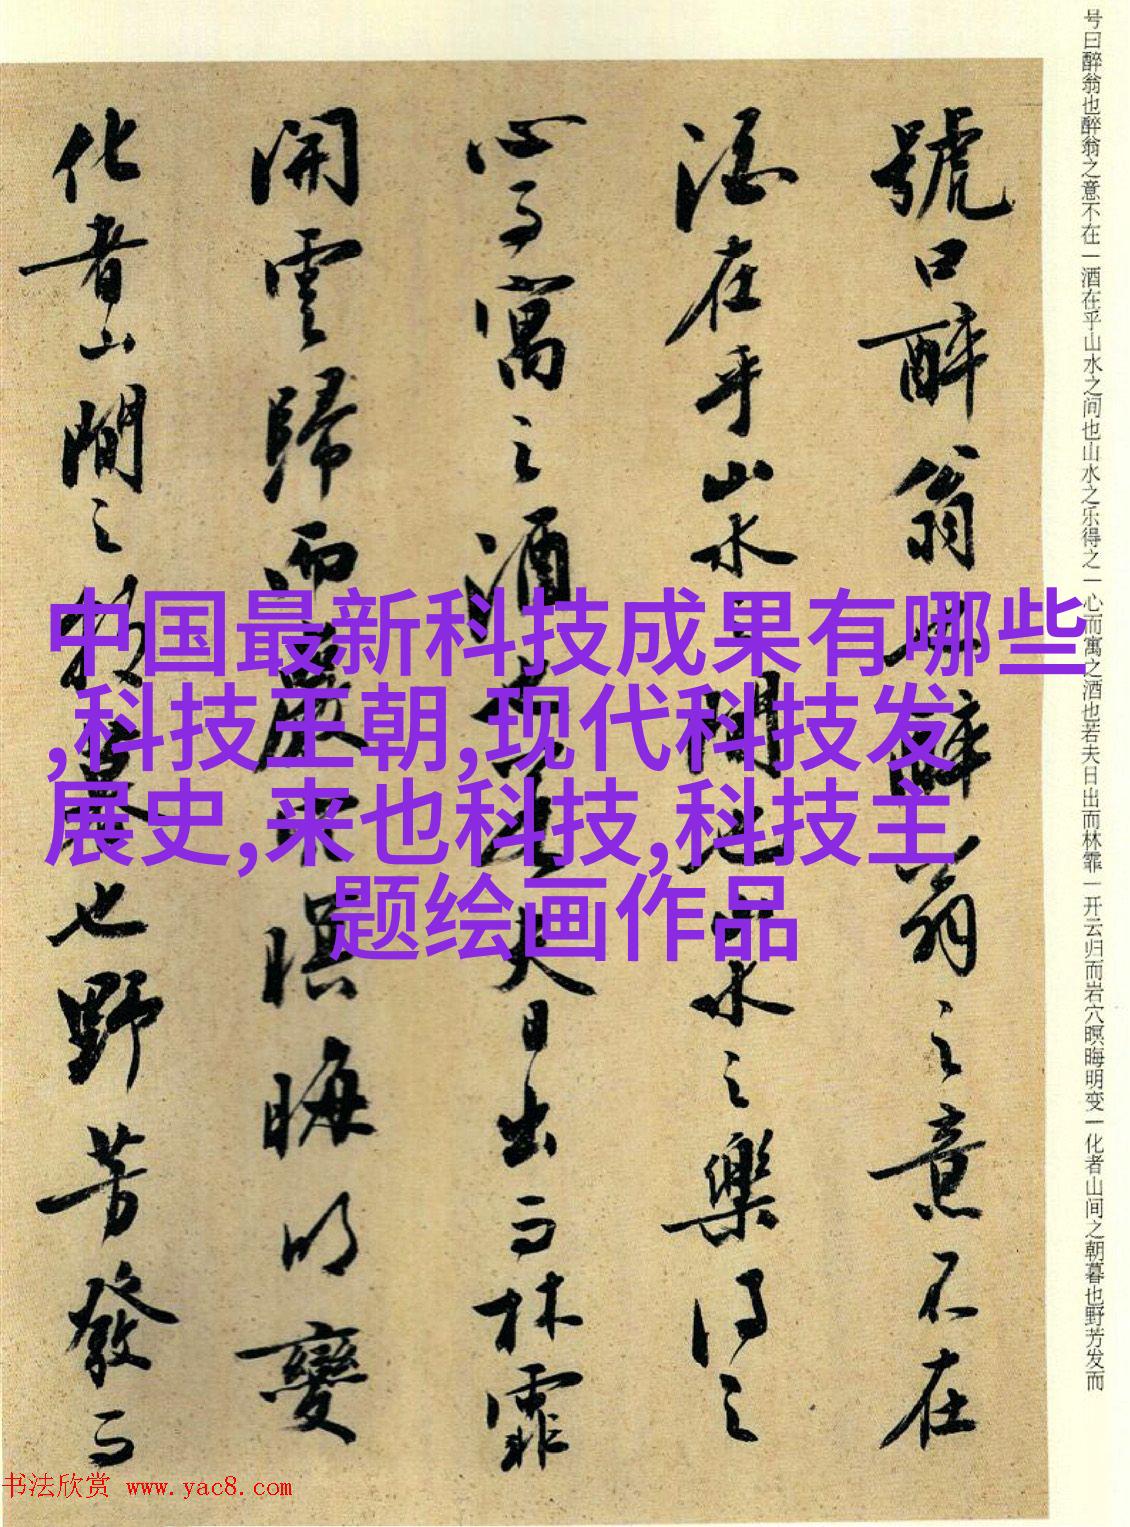 号曰醉翁也醉翁之意不在一酒在乎山水之间也山水之乐得之一心而寓之酒也若夫日出而林霏一开云归而岩穴暝晦明变一化者山间之朝暮也野芳发而
號曰醉翁也醉翁之意不在
酒在乎山水之間也山水之樂得之
心而寓之酒也若夫日出而林霏
開雲歸而巖穴暝晦明變
化者山間之朝暮也野芳發而
中国最新科技成果有哪些
,科技王朝,现代科技发
展史,来也科技,科技主
题绘画作品
书法欣赏 www.yac8.com